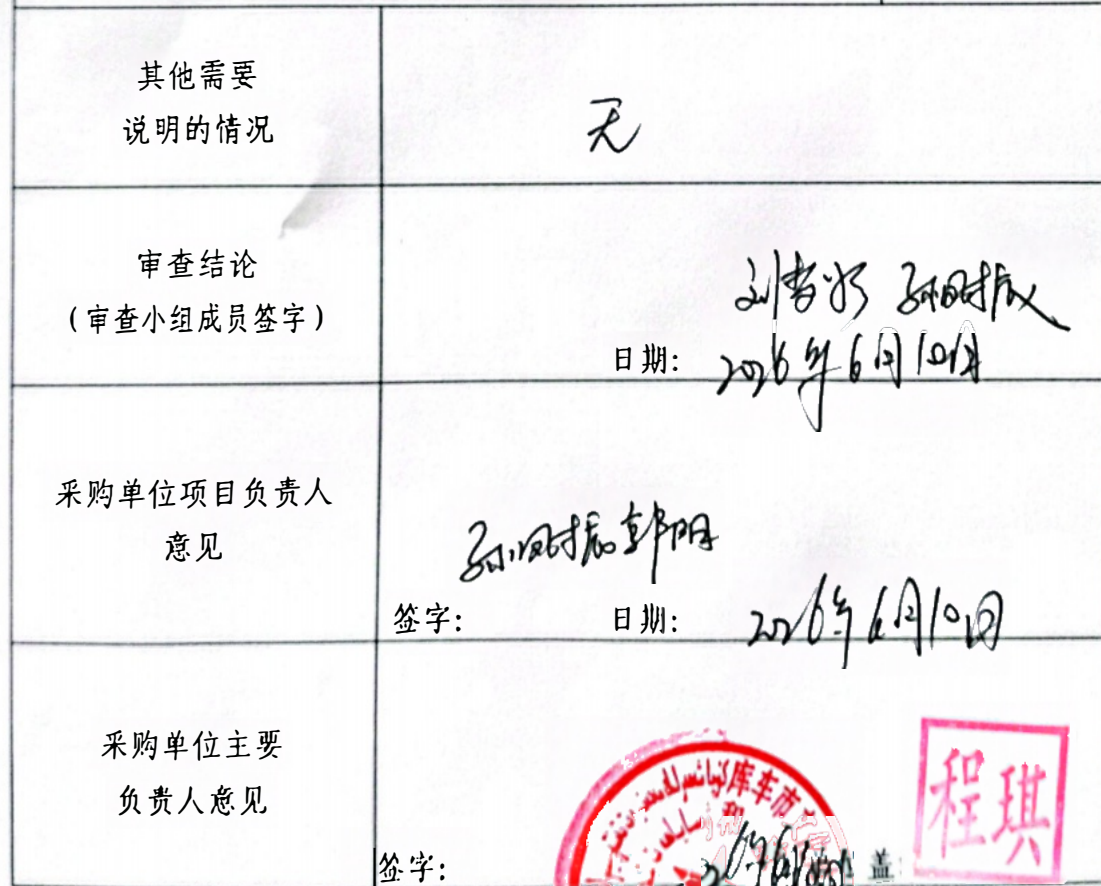 其他需要
说明的情况
无
审查结论
（审查小组成员签字）
日期：
2026年6月10日
采购单位项目负责人
意见
签字：
日期：
2026年6月10日
采购单位主要
负责人意见
库车市
程琪
签字：
盖